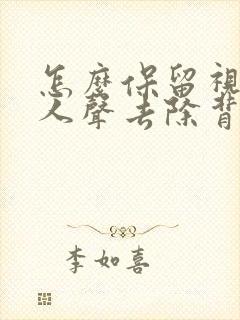 怎麼保留視
人聲去除背
李如喜